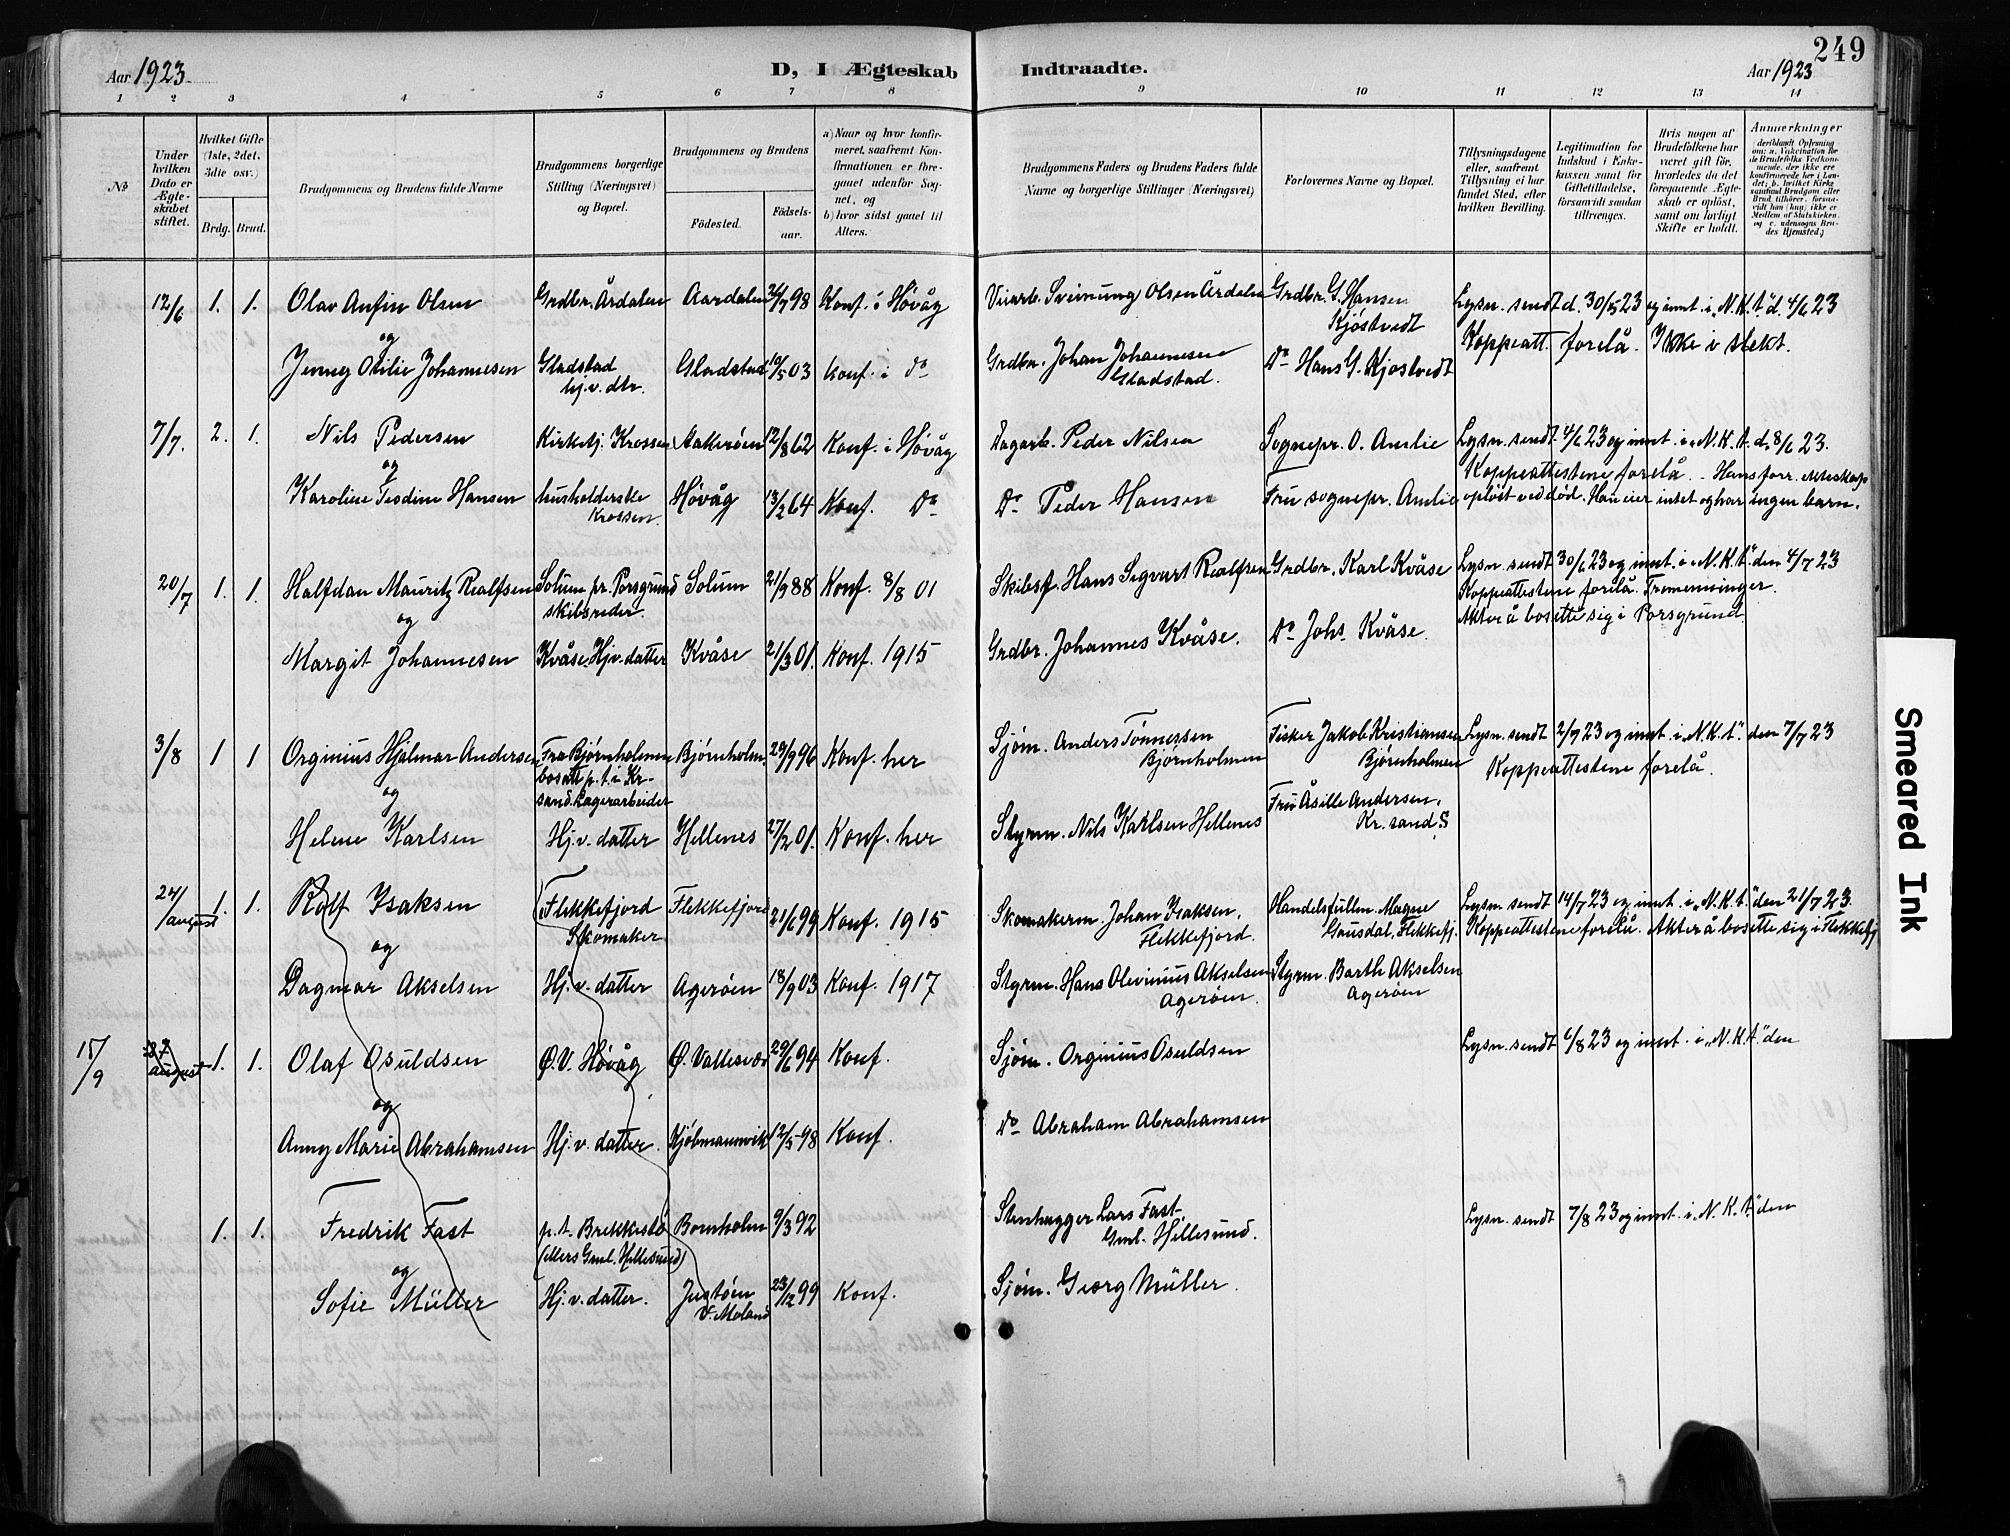 Aar 1923.
D, I Ægteskab Indtraadte.
Aar 1923
249
1 2 3 4 5 6 7 8 9 10 11 12 13 14
No
Under hvilken Dato er Ægteskabet stiftet.
Hvilket Gifte (1ste, 2det, 3die osv.)
Brdg. Brud.
Brudgommens og Brudens fulde Navne
Brudgommens borgerlige Stilling (Næringsvei) og Bopæl.
Brudgommens og Brudens
Födested.
Födselsaar.
a) Naar og hvor konfirmeret, saafremt Konfirmationen er foregaaet udenfor Sognet, og
b) hvor sidst gaaet til Alters.
Brudgommens Faders og Brudens Faders fulde Navne og borgerlige Stillinger (Næringsvei)
Forlovernes Navne og Bopæl.
Tillysningsdagene eller, saafremt Tillysning ei har fundet Sted, efter hvilken Bevilling.
Legitimation for Indskud i Enkekassen samt for Giftetilladelse, forsaavidt saadan tiltrænges.
Hvis nogen af Brudefolkene har været gift för, hvorledes da det foregaaende Ægteskab er oplöst, samt om lovligt Skifte er holdt.
Anmærkninger
12/6 1. 1. Olav Anfin Olsen Grdbr. Årdalen Aardalen 26/7 98 Konf. i Høvåg Sveinung Olsen Årdalen Grdbr. G. Hansen Kjöstvedt Lysn. sendt d. 30/5 23 og innt. i „N.K.t" d. 4/6 23
og Koppeatt. forelå. Ikke i slekt.
Jenny Otilie Johannesen Gladstad hj.v.dtr. Gladstad 10/5 03 Konf. i do Grdbr. Johan Johannesen Gladstad. Do Hans G. Kjøstvedt
7/7. 2. 1. Nils Pedersen Kirketj. Krossen Aakerøen 12/8 62 Konf. i Høvåg Dagarb. Peder Nilsen Sognepr. O. Amlie Lysn. sendt 4/6 23 og innt. i „N.K.t. d. 8/6 23.
og Koppeattestene forelå. - Hans forr. ekteskap
Karoline Tesdine Hansen husholderske Krossen. Høvåg 13/2 64 Konf. do Do Peder Hansen Fru sognepr. Amlie opløst ved død. Han eier intet og har ingen barn.
20/7 1. 1. Halfdan Mauritz Realfsen Solum pr. Porsgrund skibsreder. Solum 21/9 88 Konf. 8/8 01 Skibsf. Hans Sigvart Realfsen Grdbr. Karl Kvåse Lysn. sendt 30/6 23 og innt. i „N.K.t" den 4/7 23
og Koppeattestene forelå. Fremenninger.
Akter å bosette sig i Porsgrund
Margit Johannesen Kvåse, Hjv. datter Kvåse 21/3 01. Konf. 1915 Grdbr. Johannes Kvåse. Do Johs. Kvåse.
3/8 1 1 Orginius Hjalmar Andersen Fra Bjørnholmen bosatt p.t. i Kr-sand. Lagerarbeider Bjørnholm. 29/9 96 Konf. her Sjøm. Anders Tønnessen Bjørnholmen Fisker Jakob Kristiansen Bjørnholmen Lysn. sendt 2/7 23 og innt. i „N.K.t". den 7/7 23
og Koppeattestene forelå.
Helene Karlsen Hj.v. datter Hellenes 27/2 01. Konf. her Styrm. Nils Karlsen Hellenes Fru Åsille Andersen, Kr.sand S
24/august 1. 1. Rolf Isaksen Flekkefjord Skomaker Flekkefjord 21/6 99 Konf. 1915 Skomakerm. Johan Isaksen, Flekkefjord. Magne Gausdal, Flekkefj. Lysn. sendt 14/7 23 og innt. i „N.K.t." den 21/7 23.
og Koppeattestene forelå. Akter å bosette sig i Flekkefj
Dagmar Akselsen Hj.v. datter Agerøen 18/9 03 Konf. 1917 Styrm. Hans Olevinius Akselsen Agerøen. Styrm. Barth Akselsen Agerøen
15/9 august 1. 1. Olaf Osuldsen Ø.V. Høvåg Ø. Vallesvær 29/6 94 Konf. Sjøm. Orginius Osuldsen Lysn. sendt 6/8 23 og innt. i „N.K.t." den
og
Anny Marie Abrahamsen Hj.v. datter. Kjøbmannvik 12/5 98 Konf. Do Abraham Abrahamsen
1. 1. Fredrik Fast p.t. Brekkestø (ellers Gml. Hellesund) Bornholm 9/3 92 Stenhugger Lars Fast Gml. Hellesund. Lysn. sendt 7/8 23 og innt. i „N.K.t." den
og
Sofie Müller Hj.v. datter. Justøen V. Moland 23/12 99 Konf. Sjøm. Georg Müller.
Smeared Ink